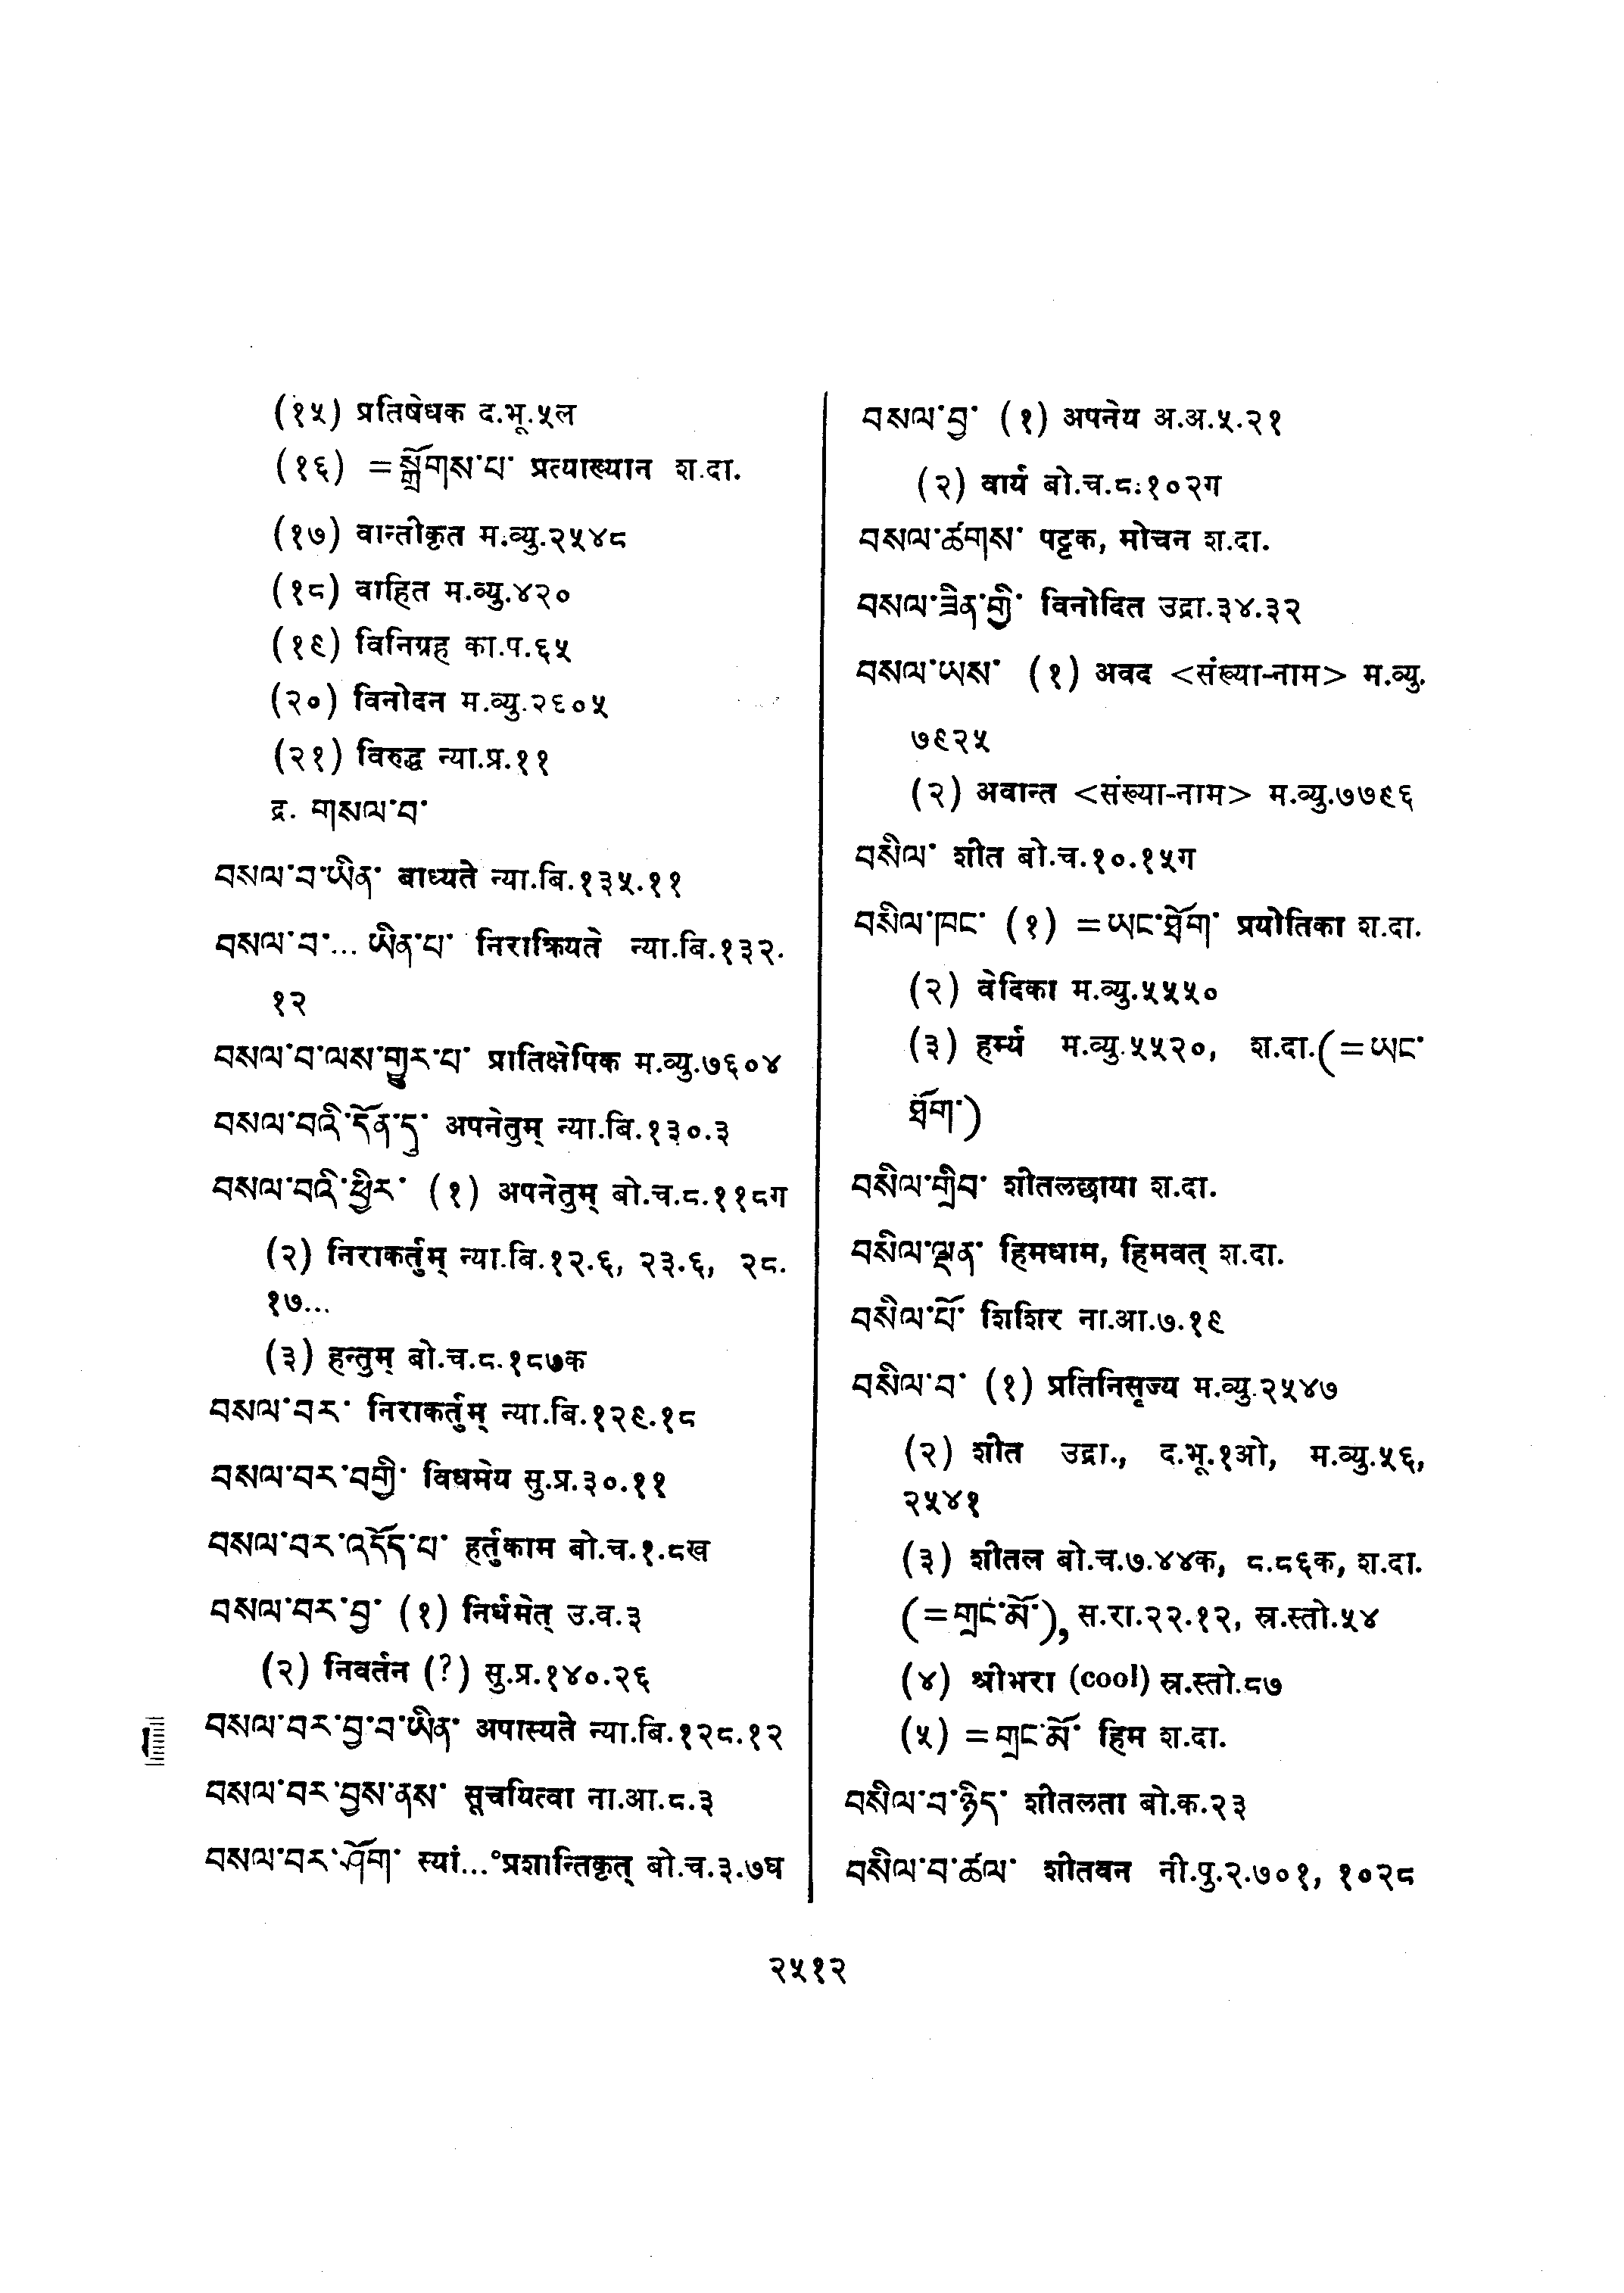 (१५) प्रतिषेधक द.भू.५ल
(१६) =སྒྲོགས་པ་ प्रत्याख्यान श.दा.
(१७) वान्तीकृत म.व्यु.२५४८
(१८) वाहित म.व्यु.४२०
(१९) विनिग्रह का.प.६५
(२०) विनोदन म.व्यु.२६०५
(२१) विरुद्ध न्या.प्र.११
द्र. གསལ་བ་
བསལ་བ་ཡིན་ बाध्यते न्या.बि.१३५.११
བསལ་བ་... ཡིན་པ་ निराक्रियते न्या.बि.१३२.
१२
བསལ་བ་ལས་གྱུར་པ་ प्रातिक्षेपिक म.व्यु.७६०४
བསལ་བའི་དོན་དུ་ अपनेतुम् न्या.बि.१३०.३
བསལ་བའི་ཕྱིར་ (१) अपनेतुम् बो.च.८.११८ग
(२) निराकर्तुम् न्या.बि.१२.६, २३.६, २८.
१७...
(३) हन्तुम् बो.च.८.१८७क
བསལ་བར་ निराकर्तुम् न्या.बि.१२९.१८
བསལ་བར་བགྱི་ विधमेय सु.प्र.३०.११
བསལ་བར་འདོད་པ་ हर्तुकाम बो.च.१.८ख
བསལ་བར་བྱ་ (१) निर्धमेत् उ.व.३
(२) निवर्तन (?) सु.प्र.१४०.२६
བསལ་བར་བྱ་བ་ཡིན་ अपास्यते न्या.बि.१२८.१२
བསལ་བར་བྱས་ནས་ सूचयित्वा ना.आ.८.३
བསལ་བར་ཤོག་ स्यां...°प्रशान्तिकृत् बो.च.३.७घ
བསལ་བྱ་ (१) अपनेय अ.अ.५.२१
(२) वार्य बो.च.८.१०२ग
བསལ་ཚགས་ पट्टक, मोचन श.दा.
བསལ་ཟིན་གྱི་ विनोदित उद्रा.३४.३२
བསལ་ཡས་ (१) अवद <संख्या-नाम> म.व्यु.
७९२५
(२) अवान्त <संख्या-नाम> म.व्यु.७७९६
བསིལ་ शीत बो.च.१०.१५ग
བསིལ་ཁང་ (१) =ཡང་ཐོག་ प्रयोतिका श.दा.
(२) वेदिका म.व्यु.५५५०
(३) हर्म्य म.व्यु.५५२०, श.दा.(=ཡང་
ཐོག་)
བསིལ་གྲིབ་ शीतलछाया श.दा.
བསིལ་ལྡན་ हिमधाम, हिमवत् श.दा.
བསིལ་པོ་ शिशिर ना.आ.७.१९
བསིལ་བ་ (१) प्रतिनिसृज्य म.व्यु.२५४७
(२) शीत उद्रा., द.भू.१ओ, म.व्यु.५६,
२५४१
(३) शीतल बो.च.७.४४क, ८.८६क, श.दा.
(=གྲང་མོ་), स.रा.२२.१२, स्र.स्तो.५४
(४) श्रीभरा (cool) स्र.स्तो.८७
(५) =གྲང་མོ་ हिम श.दा.
བསིལ་བ་ཉིད་ शीतलता बो.क.२३
བསིལ་བ་ཚལ་ शीतवन नी.पु.२.७०१, १०२८
२५१२